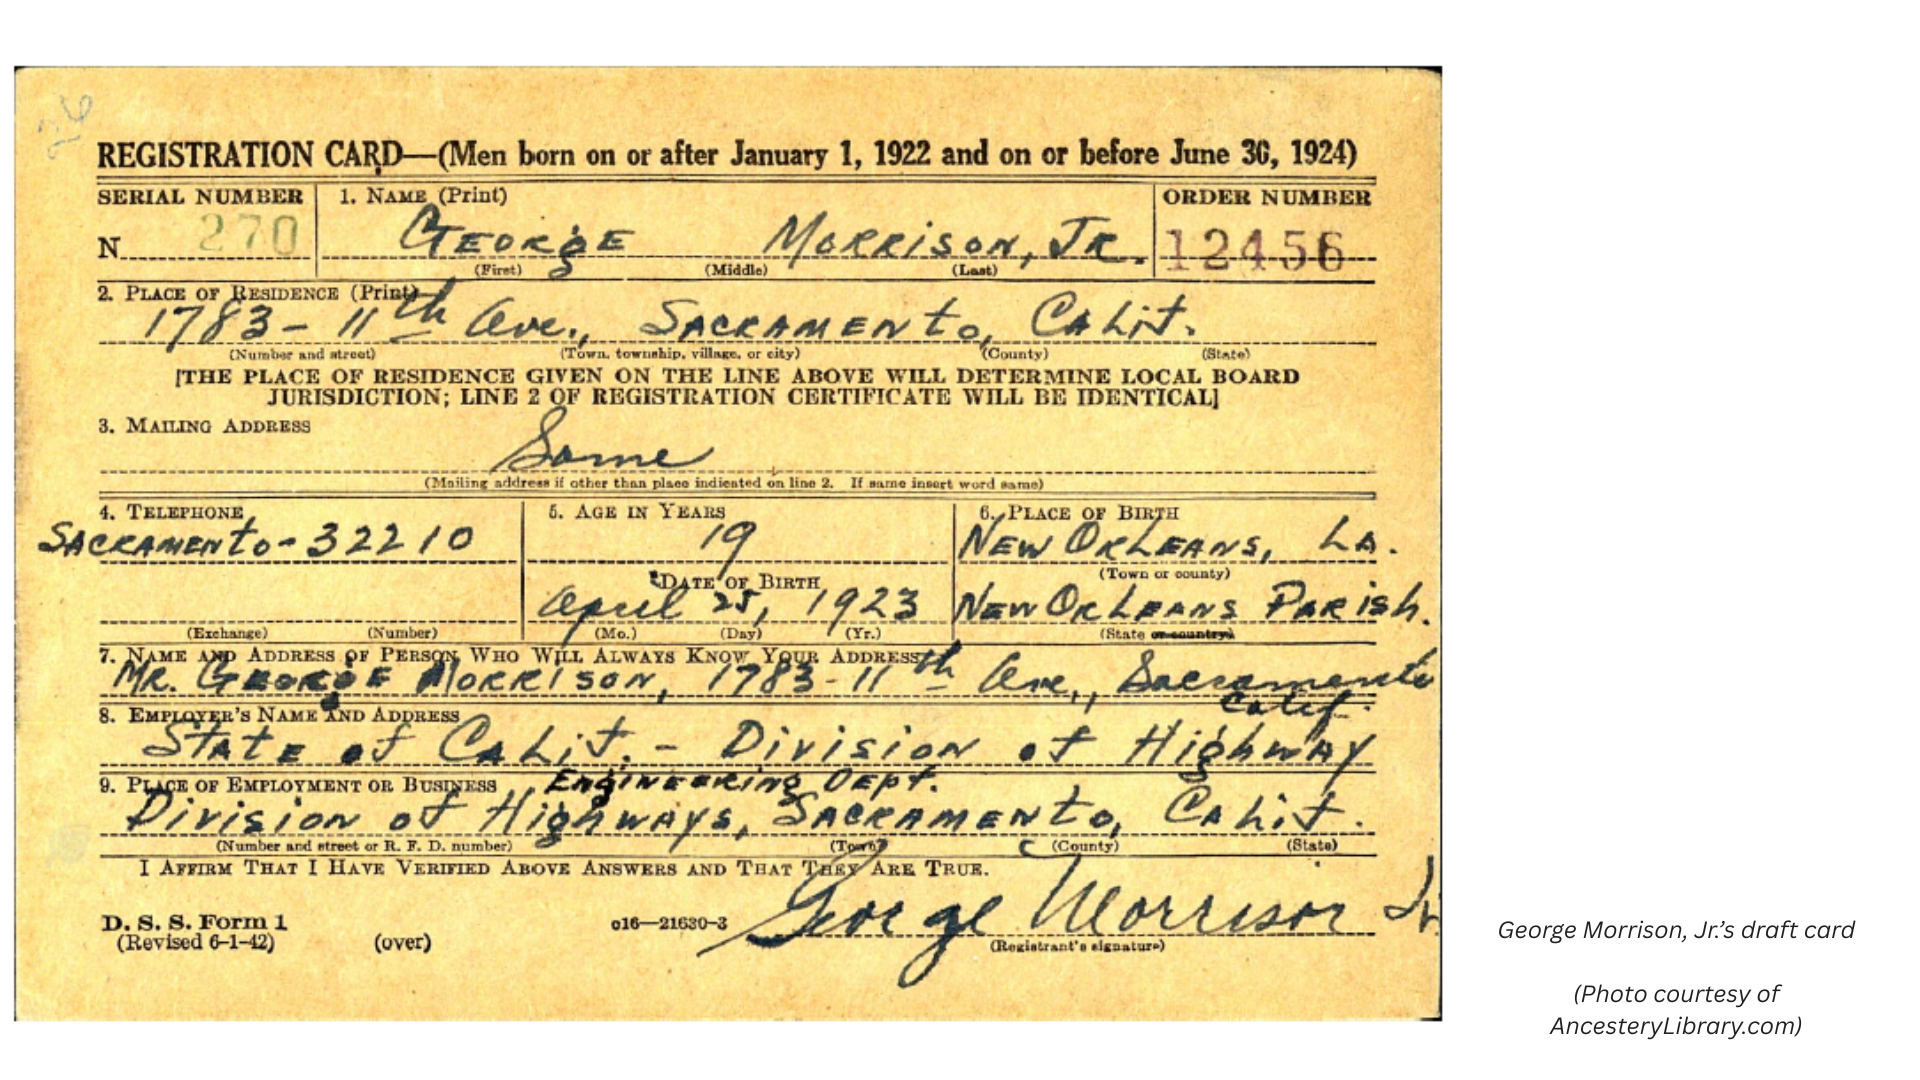 REGISTRATION CARD—(Men born on or after January 1, 1922 and on or before June 30, 1924)
SERIAL NUMBER 1. NAME (Print) ORDER NUMBER
N 270 GEORGE MORRISON, JR. 12456
(First) (Middle) (Last)
2. PLACE OF RESIDENCE (Print)
1783 - 11th Ave., SACRAMENTO, CALIF.
(Number and street) (Town, township, village, or city) (County) (State)
[THE PLACE OF RESIDENCE GIVEN ON THE LINE ABOVE WILL DETERMINE LOCAL BOARD
JURISDICTION; LINE 2 OF REGISTRATION CERTIFICATE WILL BE IDENTICAL]
3. MAILING ADDRESS
Same
(Mailing address if other than place indicated on line 2. If same insert word same)
4. TELEPHONE 5. AGE IN YEARS 6. PLACE OF BIRTH
SACRAMENTO - 32210 19 NEW ORLEANS, LA.
(Town or county)
DATE OF BIRTH
April 25, 1923 NEW ORLEANS PARISH.
(Exchange) (Number) (Mo.) (Day) (Yr.) (State or country)
7. NAME AND ADDRESS OF PERSON WHO WILL ALWAYS KNOW YOUR ADDRESS
MR. GEORGE MORRISON, 1783 - 11th Ave., Sacramento
Calif.
8. EMPLOYER'S NAME AND ADDRESS
STATE of CALIF. - DIVISION of HighwAY
9. PLACE OF EMPLOYMENT OR BUSINESS ENGINEERING DEPT.
DIVISION of HighwAYS, SACRAMENTO, CALIF.
(Number and street or R. F. D. number) (Town) (County) (State)
I AFFIRM THAT I HAVE VERIFIED ABOVE ANSWERS AND THAT THEY ARE TRUE.
George Morrison Jr.
D. S. S. Form 1 c16—21630-3
(Revised 6-1-42) (over) (Registrant's signature)
George Morrison, Jr.'s draft card
(Photo courtesy of
AncesteryLibrary.com)